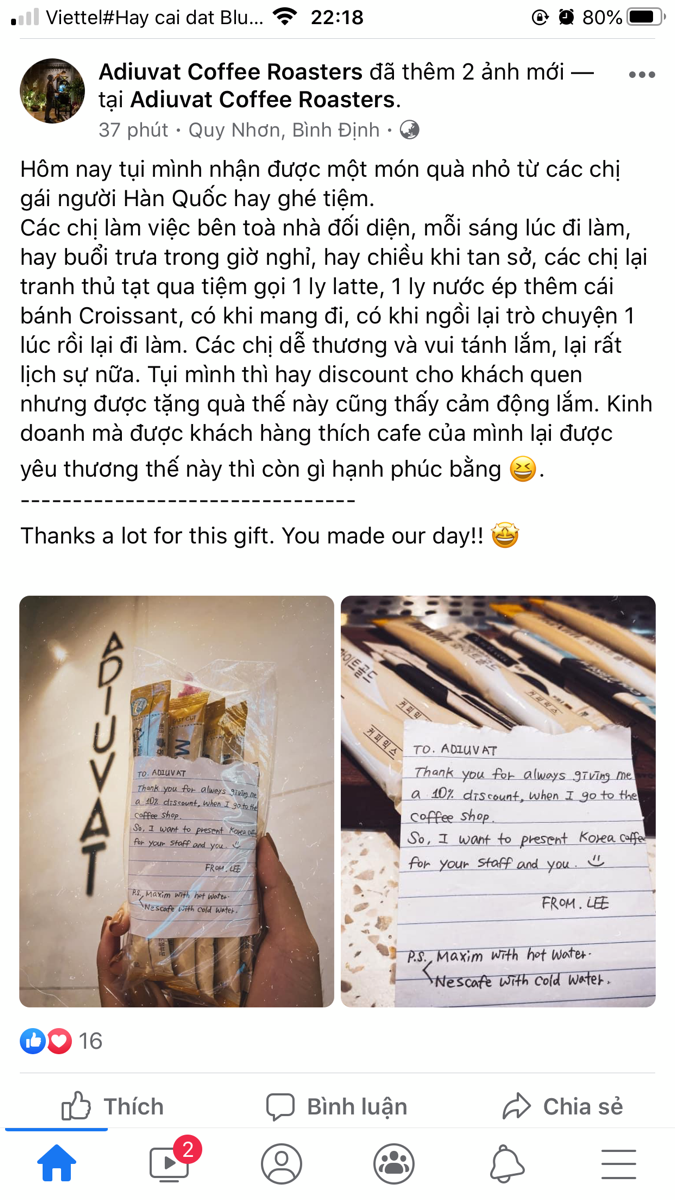 Viettel#Hay cai dat Blu... 22:18 80%
Adiuvat Coffee Roasters đã thêm 2 ảnh mới —
tại Adiuvat Coffee Roasters.
37 phút · Quy Nhơn, Bình Định ·
Hôm nay tụi mình nhận được một món quà nhỏ từ các chị
gái người Hàn Quốc hay ghé tiệm.
Các chị làm việc bên toà nhà đối diện, mỗi sáng lúc đi làm,
hay buổi trưa trong giờ nghỉ, hay chiều khi tan sở, các chị lại
tranh thủ tạt qua tiệm gọi 1 ly latte, 1 ly nước ép thêm cái
bánh Croissant, có khi mang đi, có khi ngồi lại trò chuyện 1
lúc rồi lại đi làm. Các chị dễ thương và vui tánh lắm, lại rất
lịch sự nữa. Tụi mình thì hay discount cho khách quen
nhưng được tặng quà thế này cũng thấy cảm động lắm. Kinh
doanh mà được khách hàng thích cafe của mình lại được
yêu thương thế này thì còn gì hạnh phúc bằng 😆.
--------------------------------
Thanks a lot for this gift. You made our day!! 🤩
ADIUVAT
TO. ADIUVAT
Thank you for always giving me
a 10% discount, when I go to the
coffee shop.
So, I want to present Korea coffee
for your staff and you. :)
FROM. LEE
P.S. Maxim with hot water.
Nescafe with cold water.
커피믹스
커피믹스
TO. ADIUVAT
Thank you for always giving me
a 10% discount, when I go to the
coffee shop.
So, I want to present Korea coffee
for your staff and you. :)
FROM. LEE
P.S. Maxim with hot water.
Nescafe with cold water.
16
Thích Bình luận Chia sẻ
2